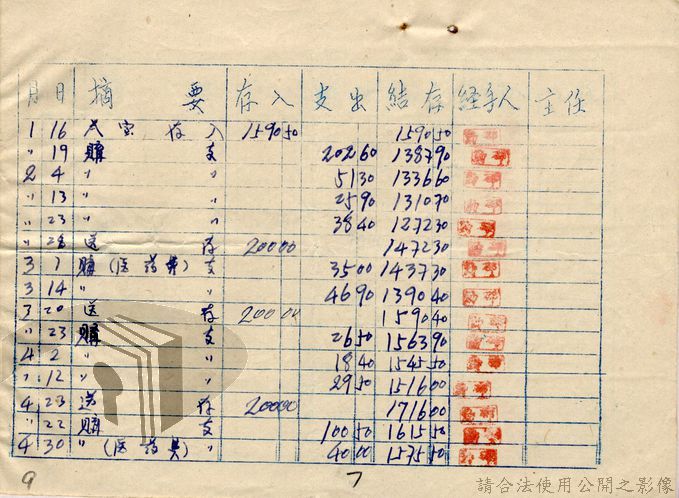 月 日 摘 要 存 入 支 出 結 存 経手人 主 任
1 16 存 入 1590 50 1590 50
" 19 購 支 202 60 1387 90
2 4 " " 51 30 1336 60
" 13 " " 25 90 1310 70
" 23 " " 38 40 1272 30
" 28 送 存 200 00 1472 30
3 7 購(医药费) 支 35 00 1437 30
3 14 " " 46 90 1390 40
3 20 送 存 200 00 1590 40
" 23 購 支 26 50 1563 90
4 2 " " 18 40 1545 50
" 12 " " 29 50 1516 00
4 23 送 存 200 00 1716 00
" 22 購 支 100 50 1615 50
4 30 "(医药费) " 40 00 1575 50
9 7
請合法使用公開之影像